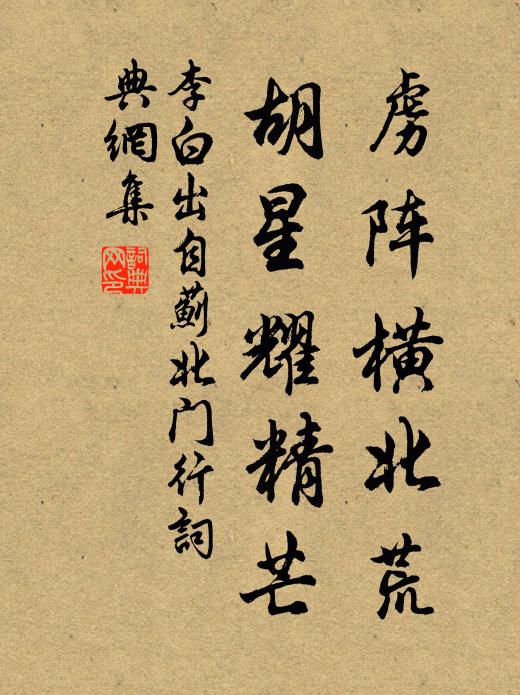 虏阵横北荒
胡星耀精芒
李白出自薊北门行詞
典網集
詞典
网印